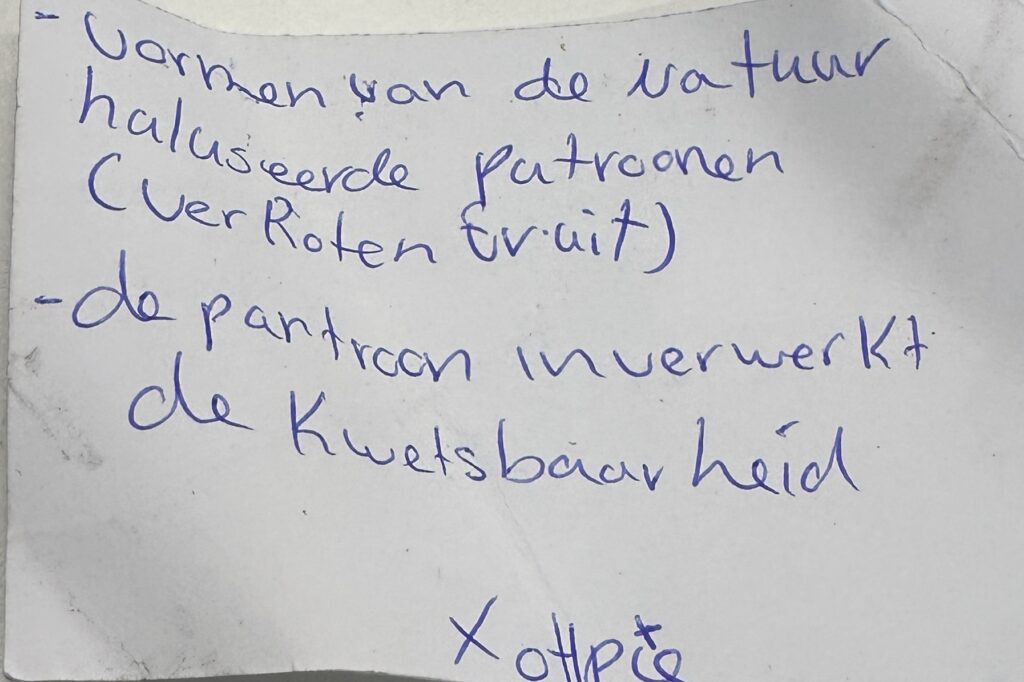 - vormen van de natuur
haluseerde patroonen
(verRoten fruit)
- de pantroon inverwerkt
de Kwetsbaarheid
X